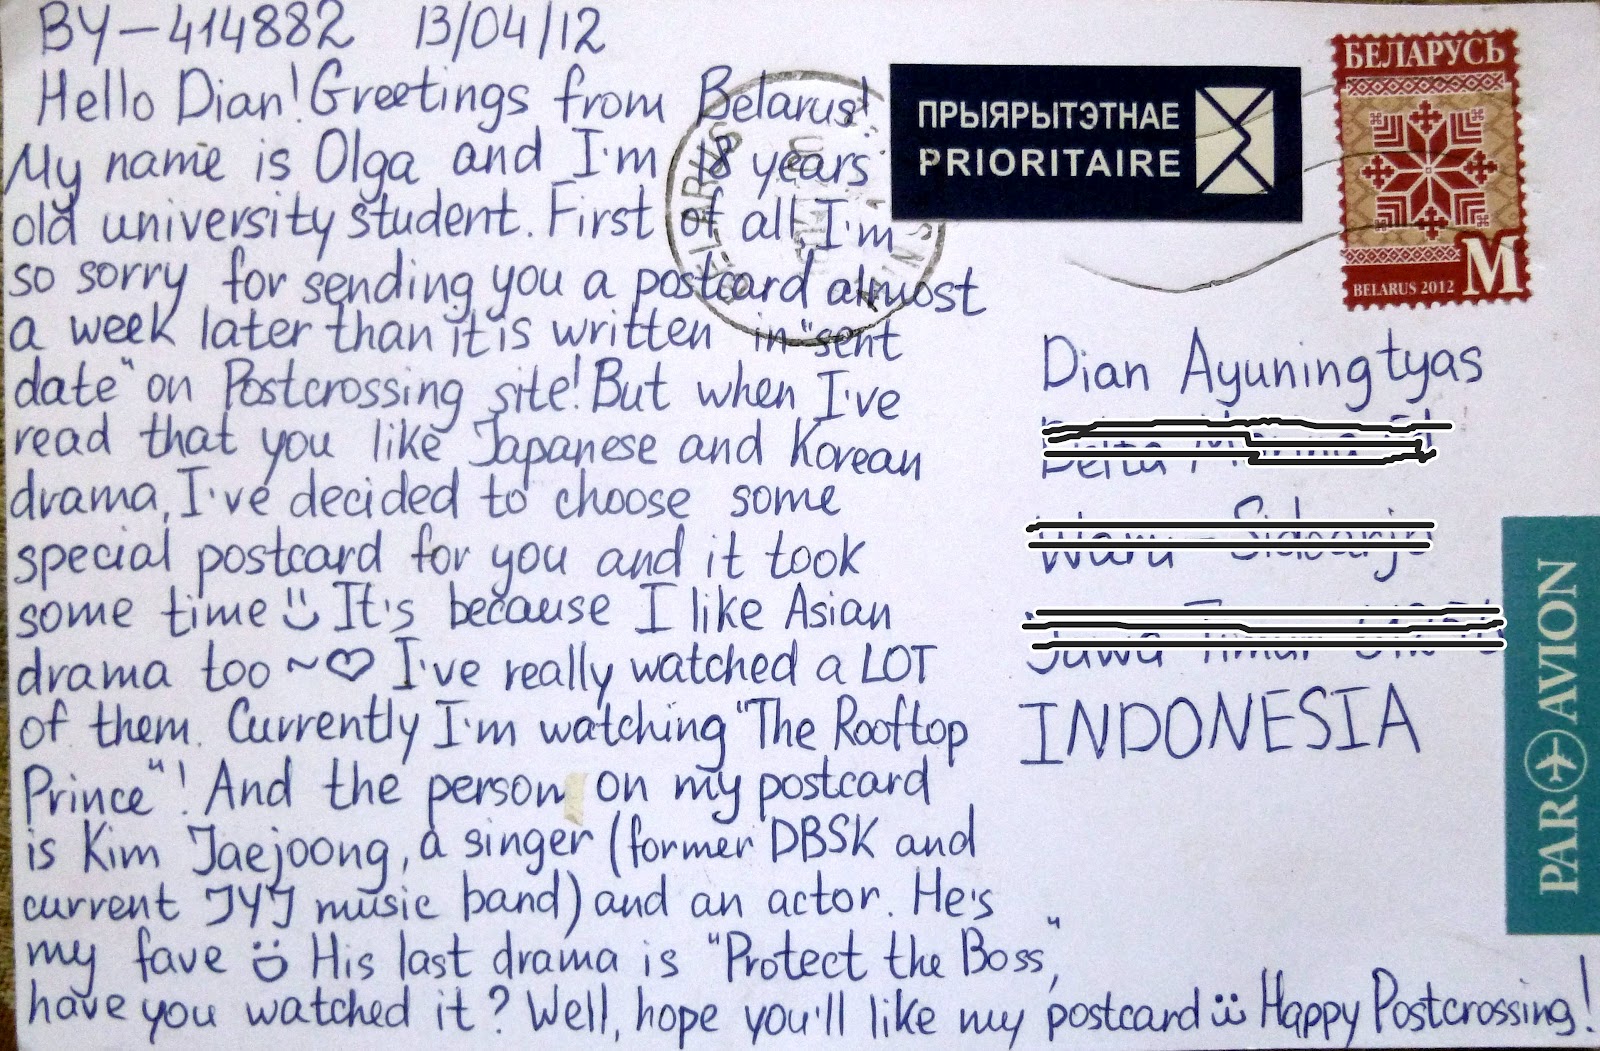 BY-414882 13/04/12
Hello Dian! Greetings from Belarus!
My name is Olga and I'm 18 years
old university student. First of all, I'm
so sorry for sending you a postcard almost
a week later than it is written in "sent
date" on Postcrossing site! But when I've
read that you like Japanese and Korean
drama, I've decided to choose some
special postcard for you and it took
some time Ü It's because I like Asian
drama too ~♡ I've really watched a LOT
of them. Currently I'm watching "The Rooftop
Prince"! And the person on my postcard
is Kim Jaejoong, a singer (former DBSK and
current JYJ music band) and an actor. He's
my fave Ü His last drama is "Protect the Boss",
have you watched it? Well, hope you'll like my postcard Ü Happy Postcrossing!
ПРЫЯРЫТЭТНАЕ
PRIORITAIRE
БЕЛАРУСЬ
BELARUS 2012 M
Dian Ayuningtyas
INDONESIA
PAR AVION